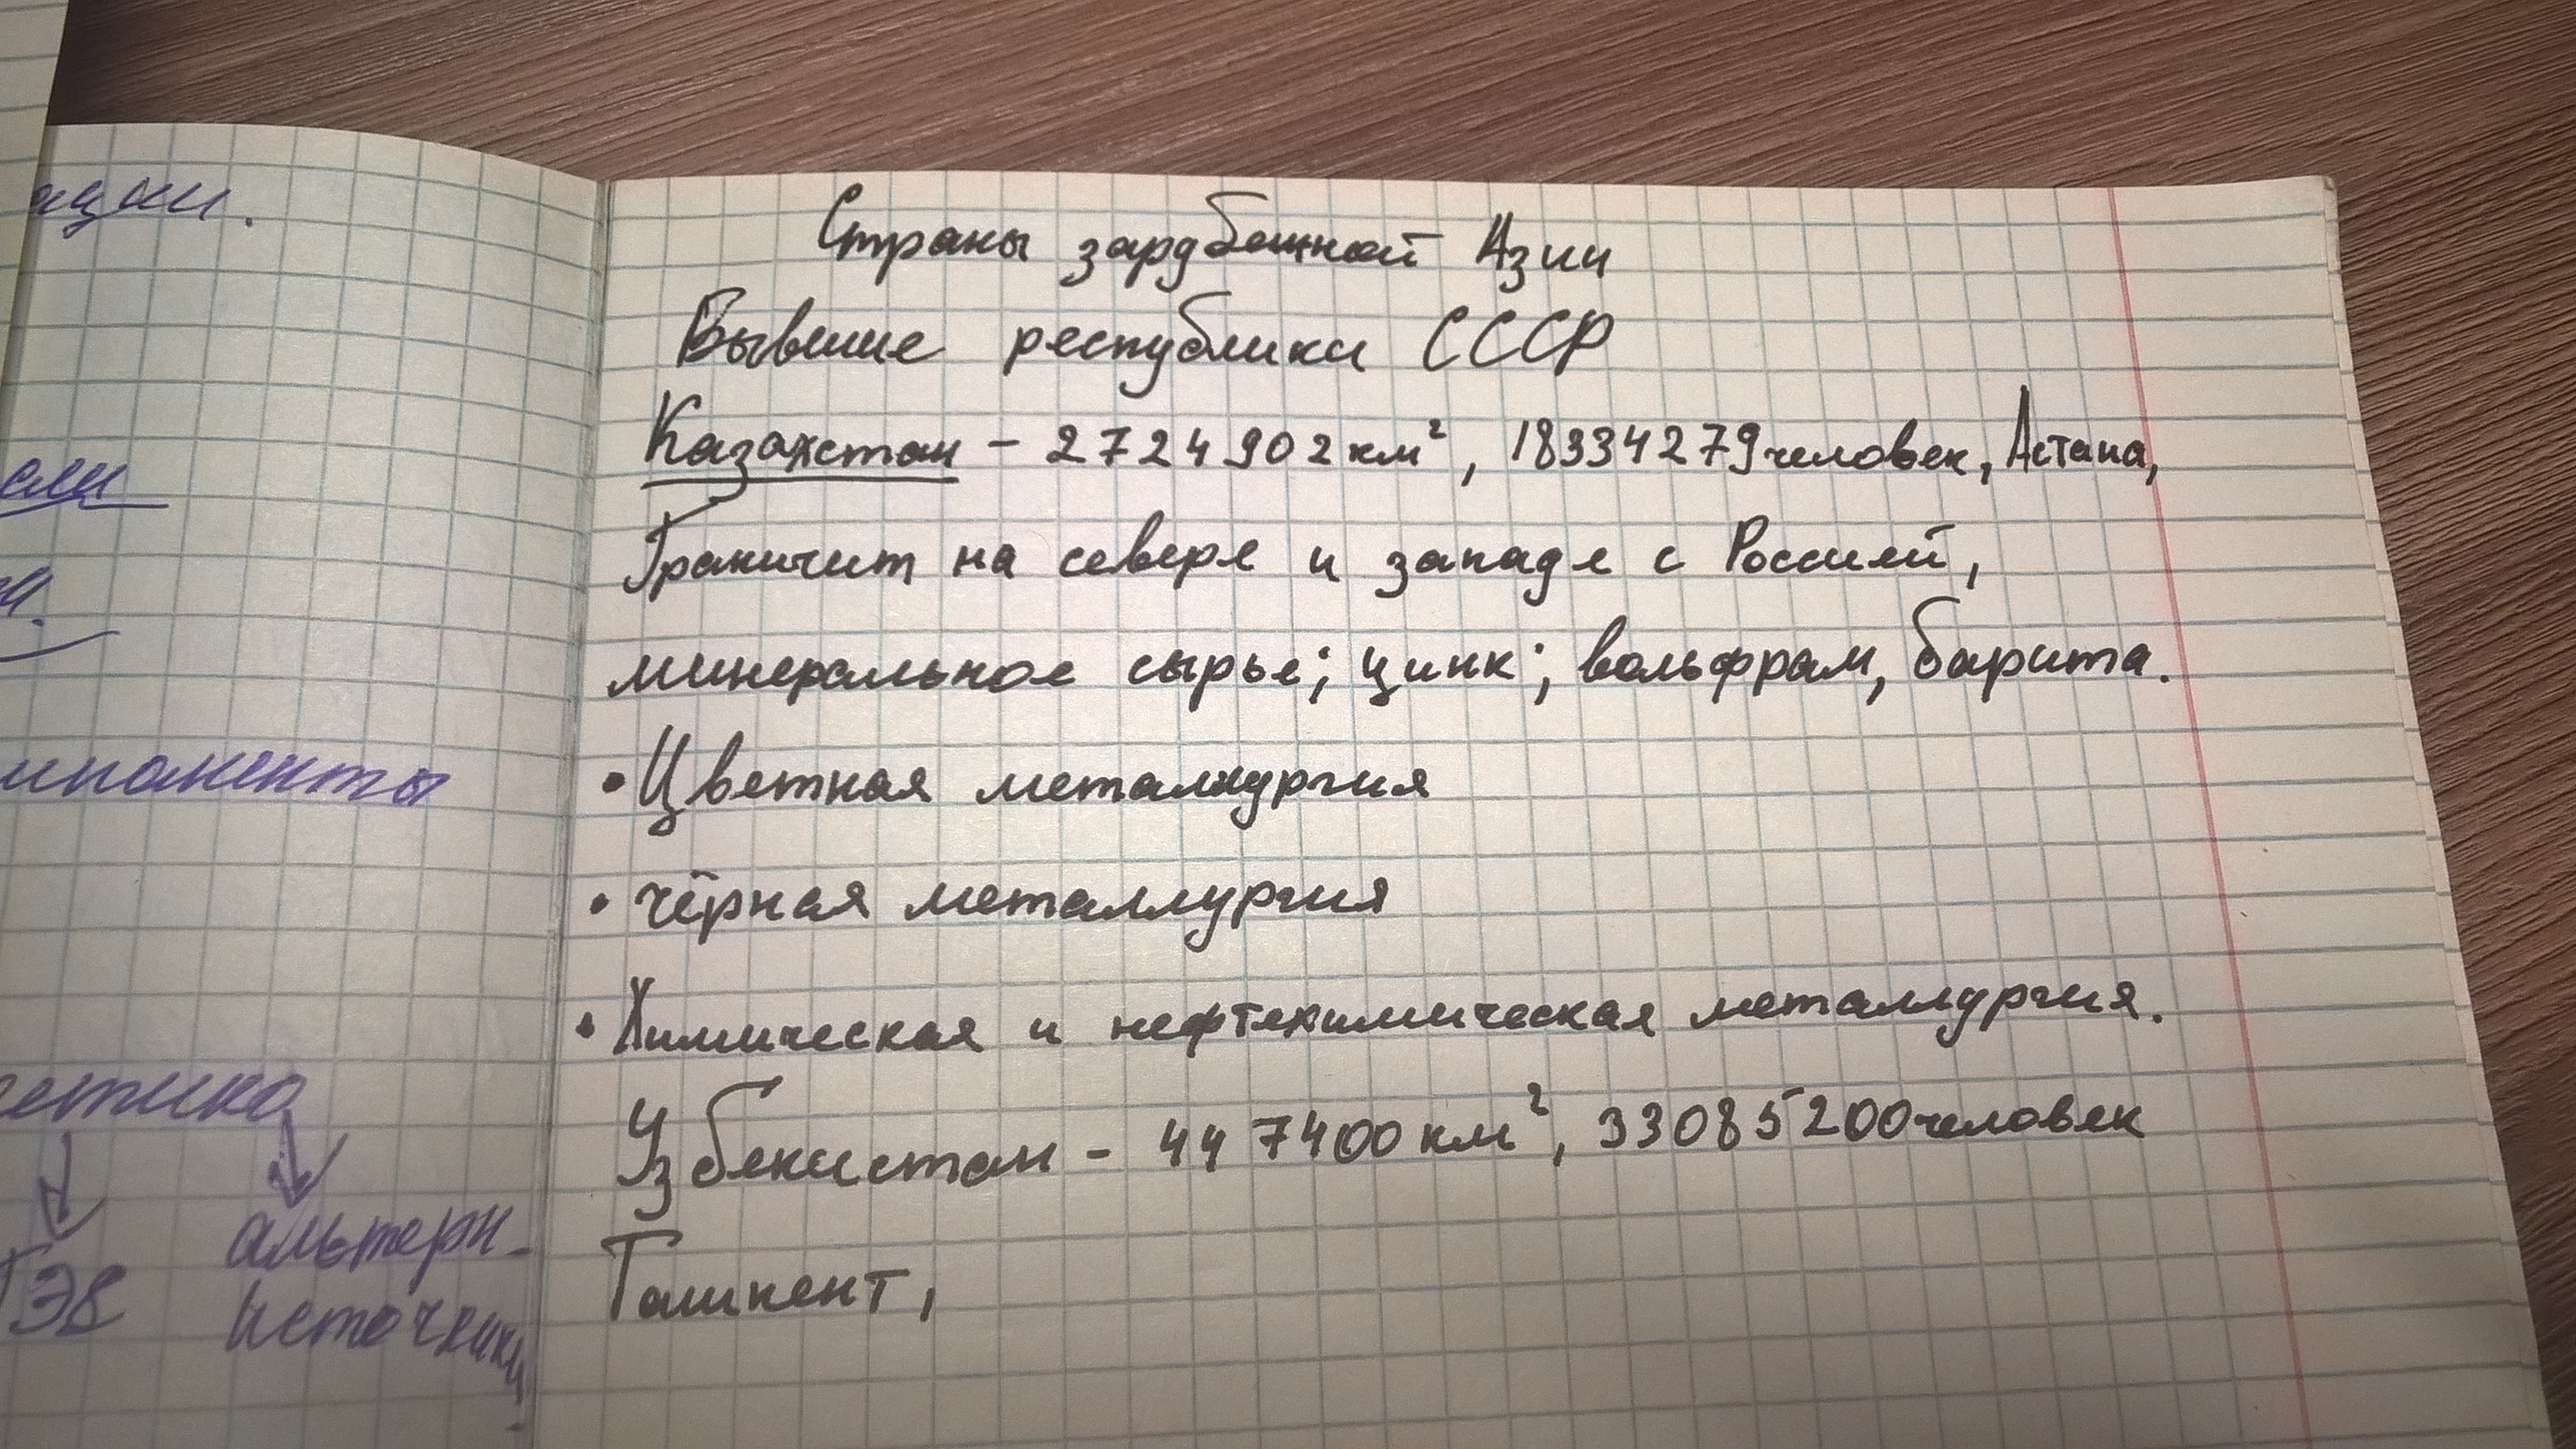 ации.
Страны зарубежной Азии
Бывшие республики СССР
Казахстан – 2724902 км², 18334279 человек, Астана,
Граничит на севере и западе с Россией,
минеральное сырье; цинк; вольфрам, барита.
• Цветная металлургия
• чёрная металлургия
• Химическая и нефтехимическая металлургия.
Узбекистан – 447400 км², 33085200 человек
Ташкент,
альтерн.
источники